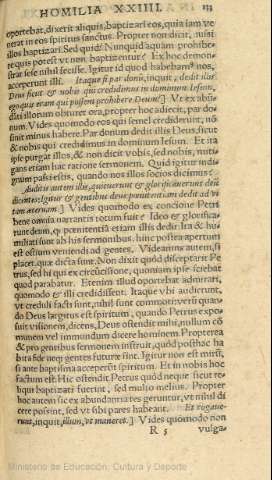 HOMILIA XXIIII. 133
oportebat, dixerit aliquis, baptizari eos, quia iam ve
nerat in eos spiritus sanctus. Propter non dicit, nisi
illos baptizari. Sed quid? Nunquid aquam prohibe-
re quis potest vt non baptizentur? Ex hoc demon-
strat sese nihil fecisse. Igitur id quod habebamus nos,
acceperunt illi. Itaque si par donis, inquit, dedit illis
Deus sicut & nobis qui credidimus in dominum Iesum,
ego quis eram qui possem prohibere Deum? ] Vt exabun
dati illorum obturet ora, propter hoc adiecit, par do
num. Vides quomodo eos qui semel crediderunt, nō
sinit minus habere. Par donum dedit illis Deus, sicut
& nobis qui credidimus in dominum Iesum. Et ita
ipse purgat illos, & non dicit vobis, sed nobis,
gans etiam hac ratione sermonem. Quid igitur indi-
gnum passi estis, quando nos illos socios dicimus?
Auditis autem illis, quieuerunt & glorificauerunt deū
dicentes: Igitur & gentibus deus pœnitentiam dedit ad vi
tam æternam. ] Vides quomodo ex concione Petri
bene omnia narrantis totum fuit? Ideo & glorifica-
runt deum, qȝ pœnitentiā etiam illis dedit. Ita & hu
miliati sunt ab his sermonibus. hinc postea apertum
est ostium veniendi ad gentes. Videamus autem, si
placet, quæ dicta sunt. Non dixit quòd disceptarit Pe
trus, sed hi qui ex circuncisione, quoniam ipse sciebat
quod parabatur. Etenim illud oportebat admirari,
quomodo & illi credidissent. Itaque vbi audierunt,
vt creduli facti sunt, nihil sunt commoti: verū quan-
do Deus largitus est spiritum, quando Petrus expo
suit visionem, dicens, Deus ostendit mihi, nullum cō
munem vel immundum dicere hominem. Propterea
& pro gentibus sermonem instruit, quòd posthac ha
bita fide neqȝ gentes futuræ sint. Igitur non est mirū,
si ante baptisma acceperūt spiritum. Et in nobis hoc
factum est. Hic ostendit Petrus quòd neque sicut re-
liqui baptizati fuerint, sed multo melius. Propter
hoc autem sic ex abundanti res geruntur, vt nihil di
cere possint, sed vt sibi pares habeant. Et rogaue-
runt, inquit, illum, vt maneret. ] Vides quomodo non
R 5 vulga-
Ministerio de Educación, Cultura y Deporte